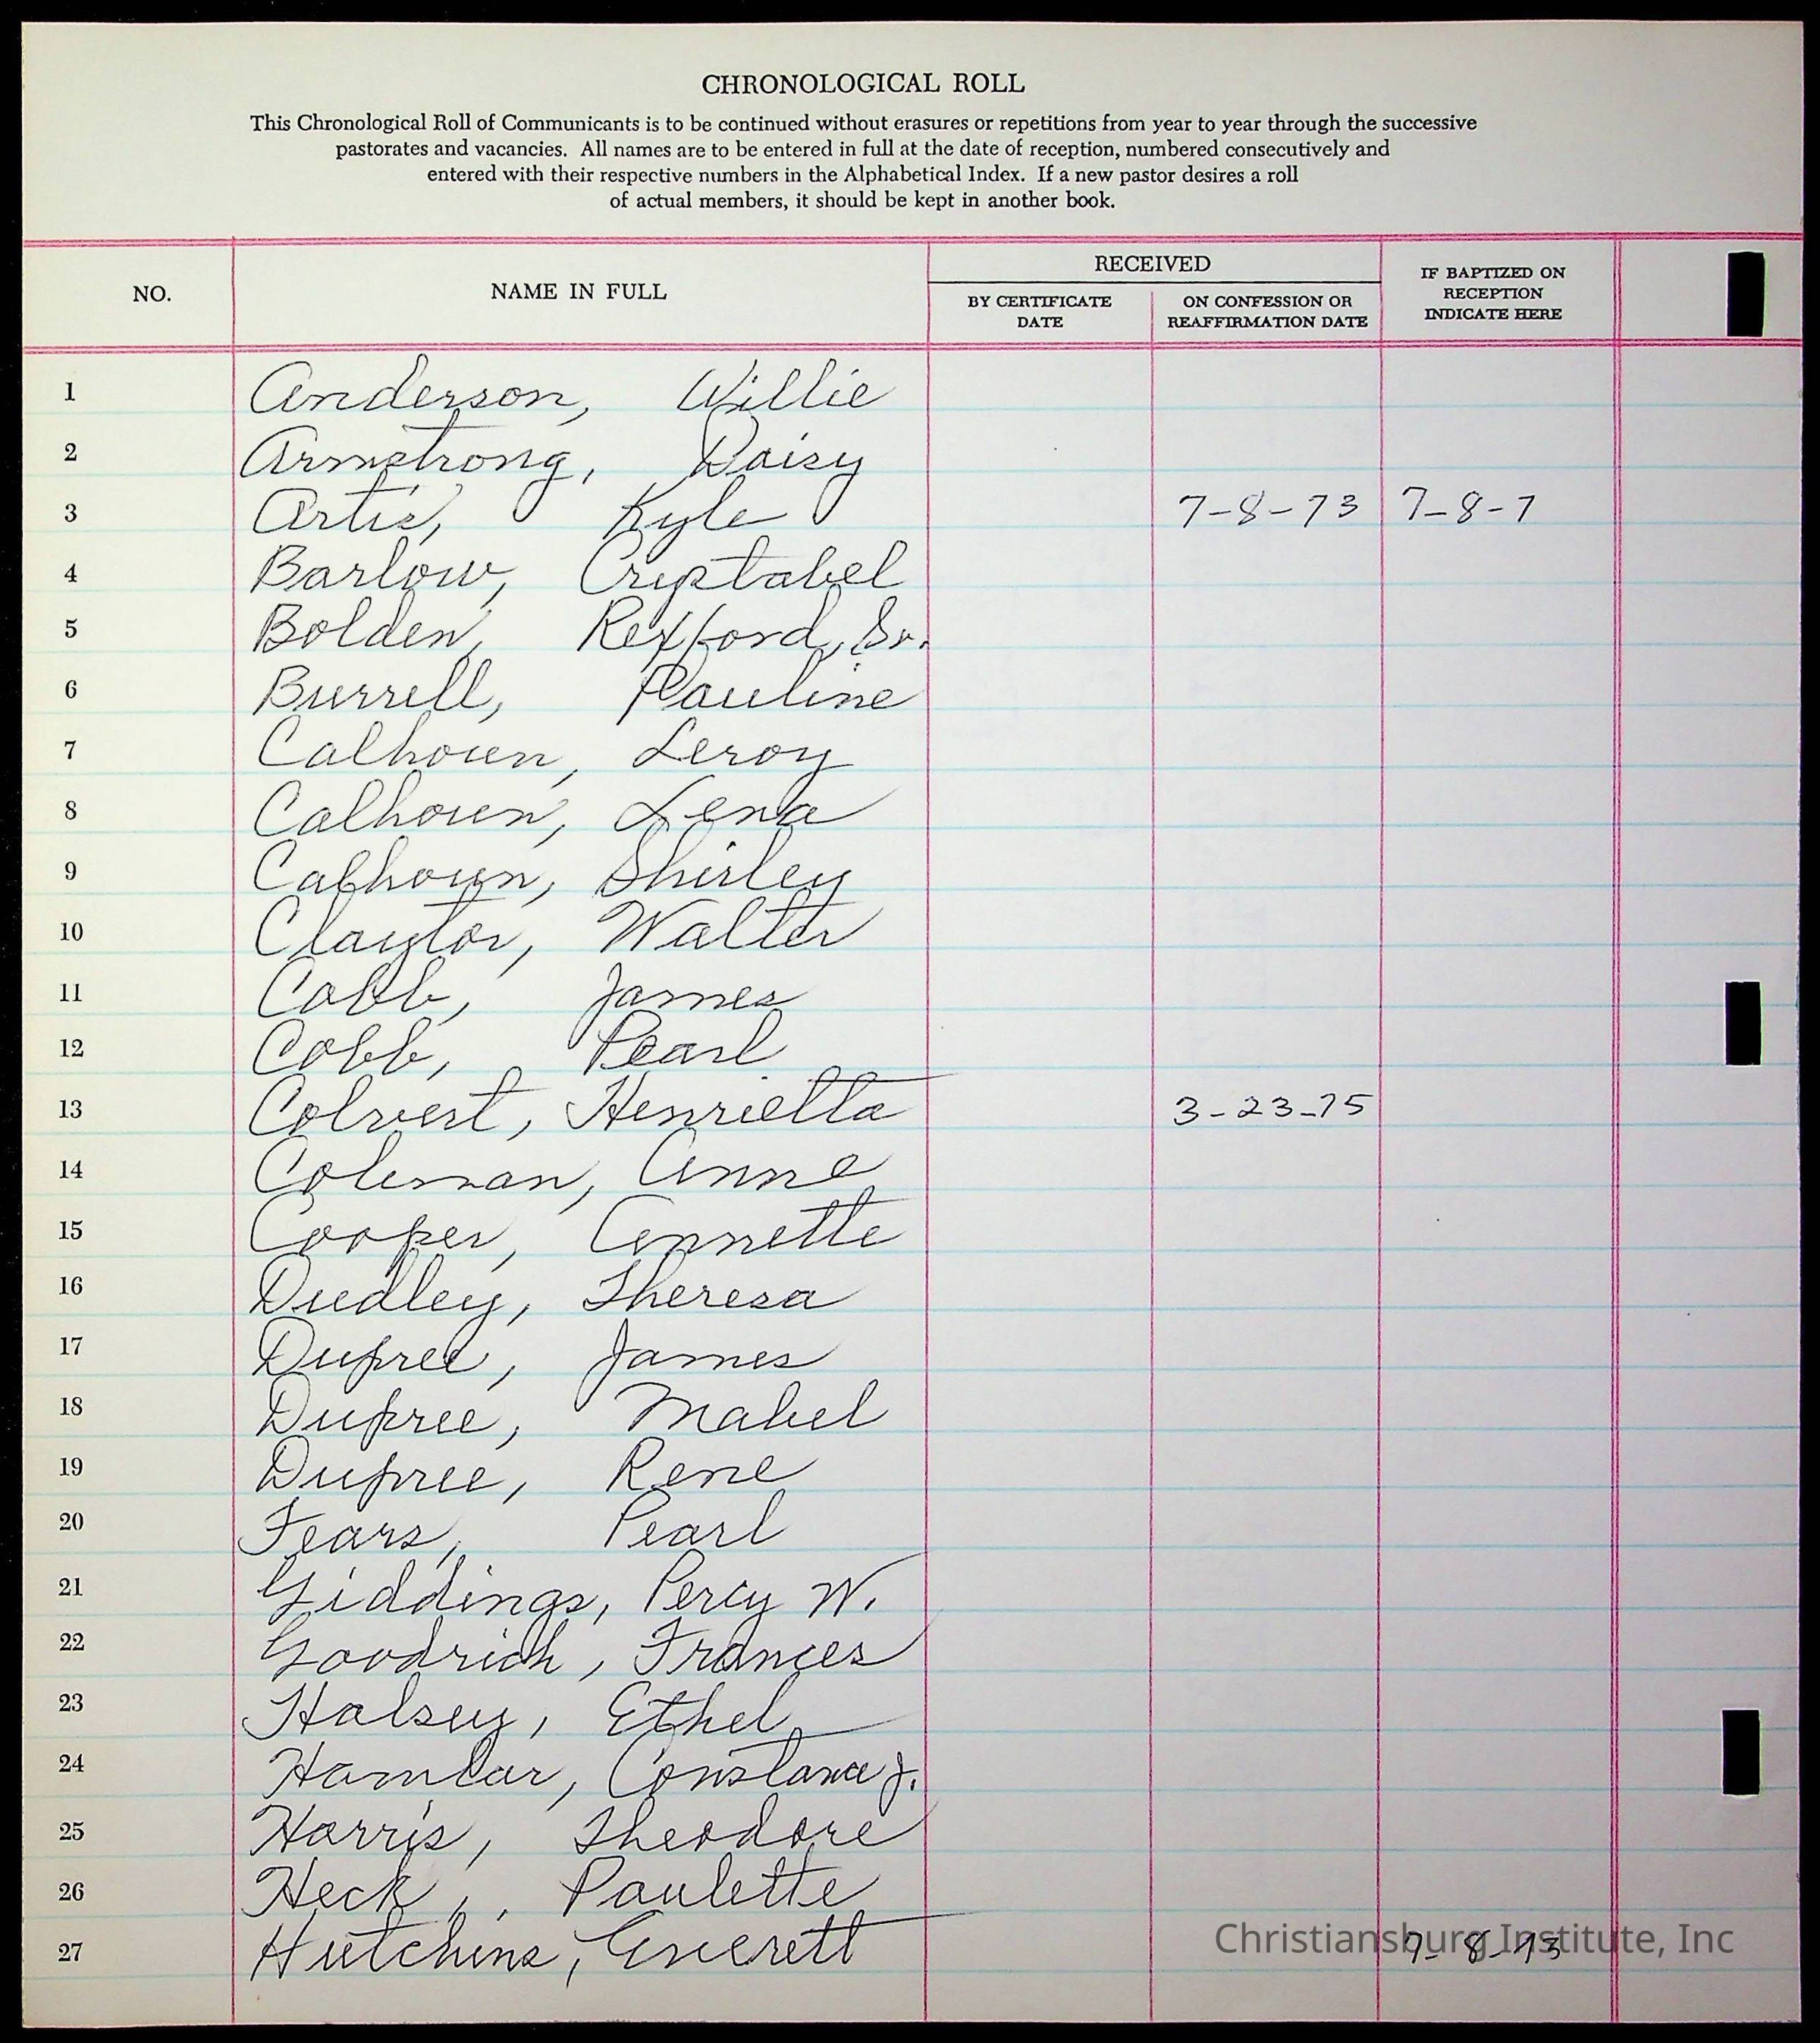 CHRONOLOGICAL ROLL
This Chronological Roll of Communicants is to be continued without erasures or repetitions from year to year through the successive
pastorates and vacancies. All names are to be entered in full at the date of reception, numbered consecutively and
entered with their respective numbers in the Alphabetical Index. If a new pastor desires a roll
of actual members, it should be kept in another book.
NO. NAME IN FULL RECEIVED IF BAPTIZED ON RECEPTION INDICATE HERE
BY CERTIFICATE DATE ON CONFESSION OR REAFFIRMATION DATE
1 Anderson, Willie
2 Armstrong, Daisy
3 Artis, Kyle 7-8-73 7-8-7
4 Barlow, Crystabel
5 Bolden, Rexford, Sr.
6 Burrell, Pauline
7 Calhoun, Leroy
8 Calhoun, Lena
9 Calhoun, Shirley
10 Claytor, Walter
11 Cobb, James
12 Cobb, Pearl
13 Colvert, Henrietta 3-23-75
14 Coleman, Anne
15 Cooper, Annette
16 Dudley, Theresa
17 Dupree, James
18 Dupree, Mabel
19 Dupree, Rene
20 Fears, Pearl
21 Giddings, Percy W.
22 Goodrich, Frances
23 Halsey, Ethel
24 Hamlar, Constance J.
25 Harris, Theodore
26 Heck, Paulette
27 Hutchins, Everett 7-8-73
Christiansburg Institute, Inc